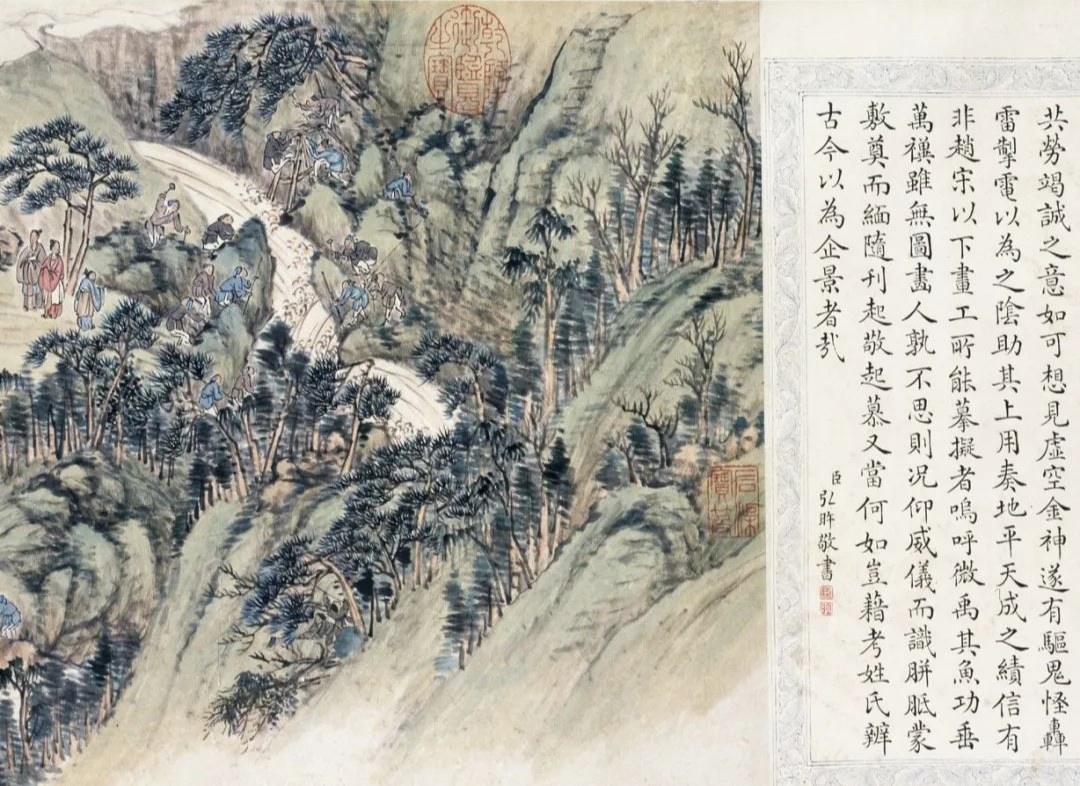 共勞竭誠之意如可想見虛空金神遂有驅鬼怪轟
雷掣電以為之陰助其上用奏地平天成之績信有
非趙宋以下畫工所能摹擬者嗚呼微禹其魚功垂
萬禩雖無圖畫人孰不思則况仰威儀而識胼胝蒙
敷奠而緬隨刊起敬起慕又當何如豈藉考姓氏辨
古今以為企景者哉
臣弘旿敬書
乾隆御覽之寶
石渠寶笈